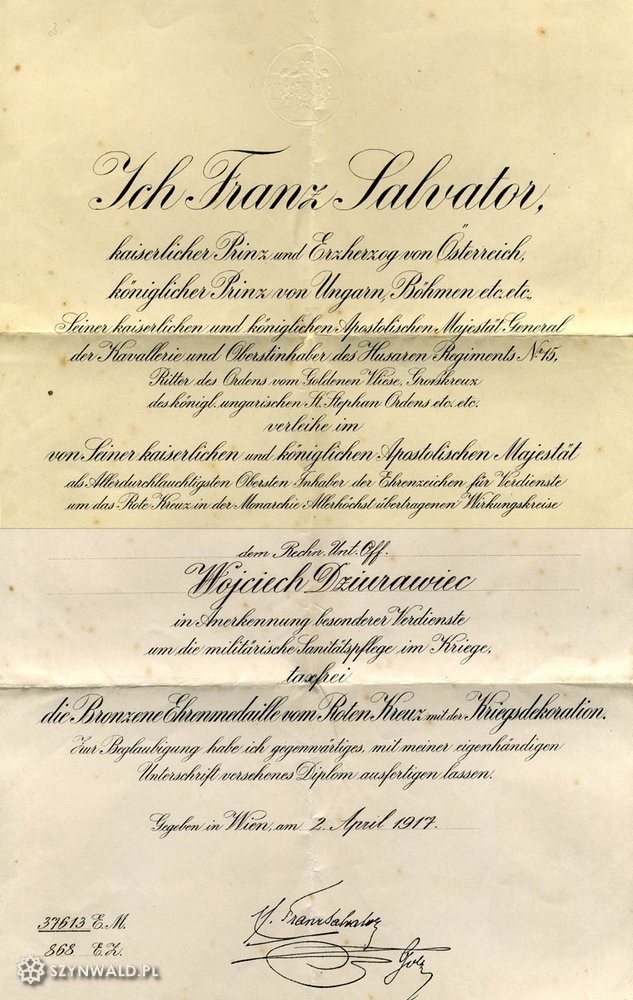 Ich Franz Salvator,
kaiserlicher Prinz und Erzherzog von Österreich,
königlicher Prinz von Ungarn, Böhmen etc. etc.,
Seiner kaiserlichen und königlichen Apostolischen Majestät General
der Kavallerie und Oberstinhaber des Husaren Regiments Nr. 15,
Ritter des Ordens vom Goldenen Vliese, Großkreuz
des königl. ungarischen St. Stephan Ordens etc. etc.
verleihe im
von Seiner kaiserlichen und königlichen Apostolischen Majestät
als Allerdurchlauchtigsten Obersten Inhaber der Ehrenzeichen für Verdienste
um das Rote Kreuz in der Monarchie Allerhöchst übertragenen Wirkungskreise
dem Rechn. Unt. Off.
Wojciech Dziurawiec
in Anerkennung besonderer Verdienste
um die militärische Sanitätspflege im Kriege,
taxfrei
die Bronzene Ehrenmedaille vom Roten Kreuz mit der Kriegsdekoration.
Zur Beglaubigung habe ich gegenwärtiges, mit meiner eigenhändigen
Unterschrift versehenes Diplom ausfertigen lassen.
Gegeben in Wien, am 2. April 1917.
37613 E.M.
868 E.Z.
Franz Salvator
SZYNWALD.PL